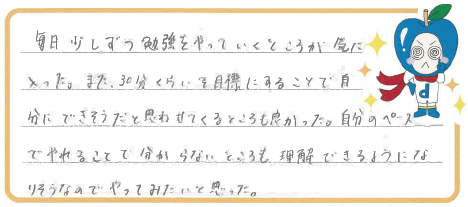 毎日少しずつ勉強をやっていくところが気に
入った。また、30分くらいを目標にすることで自
分にできそうだと思わせてくるところも良かった。自分のペース
でやれることで分からないところも理解できるようにな
りそうなのでやってみたいと思った。
d